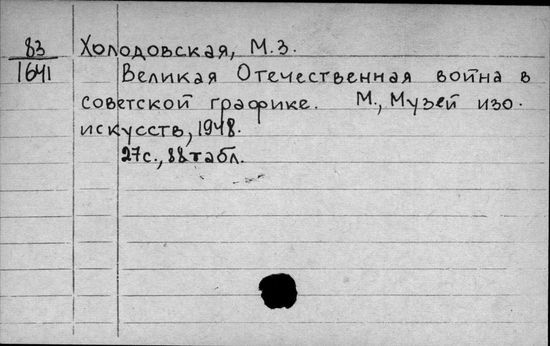 83 Холодовская, М.З.
1641 Великая Отечественная война в
советской графике. М., Музей изо.
искусств, 1948.
27с., 88 табл.